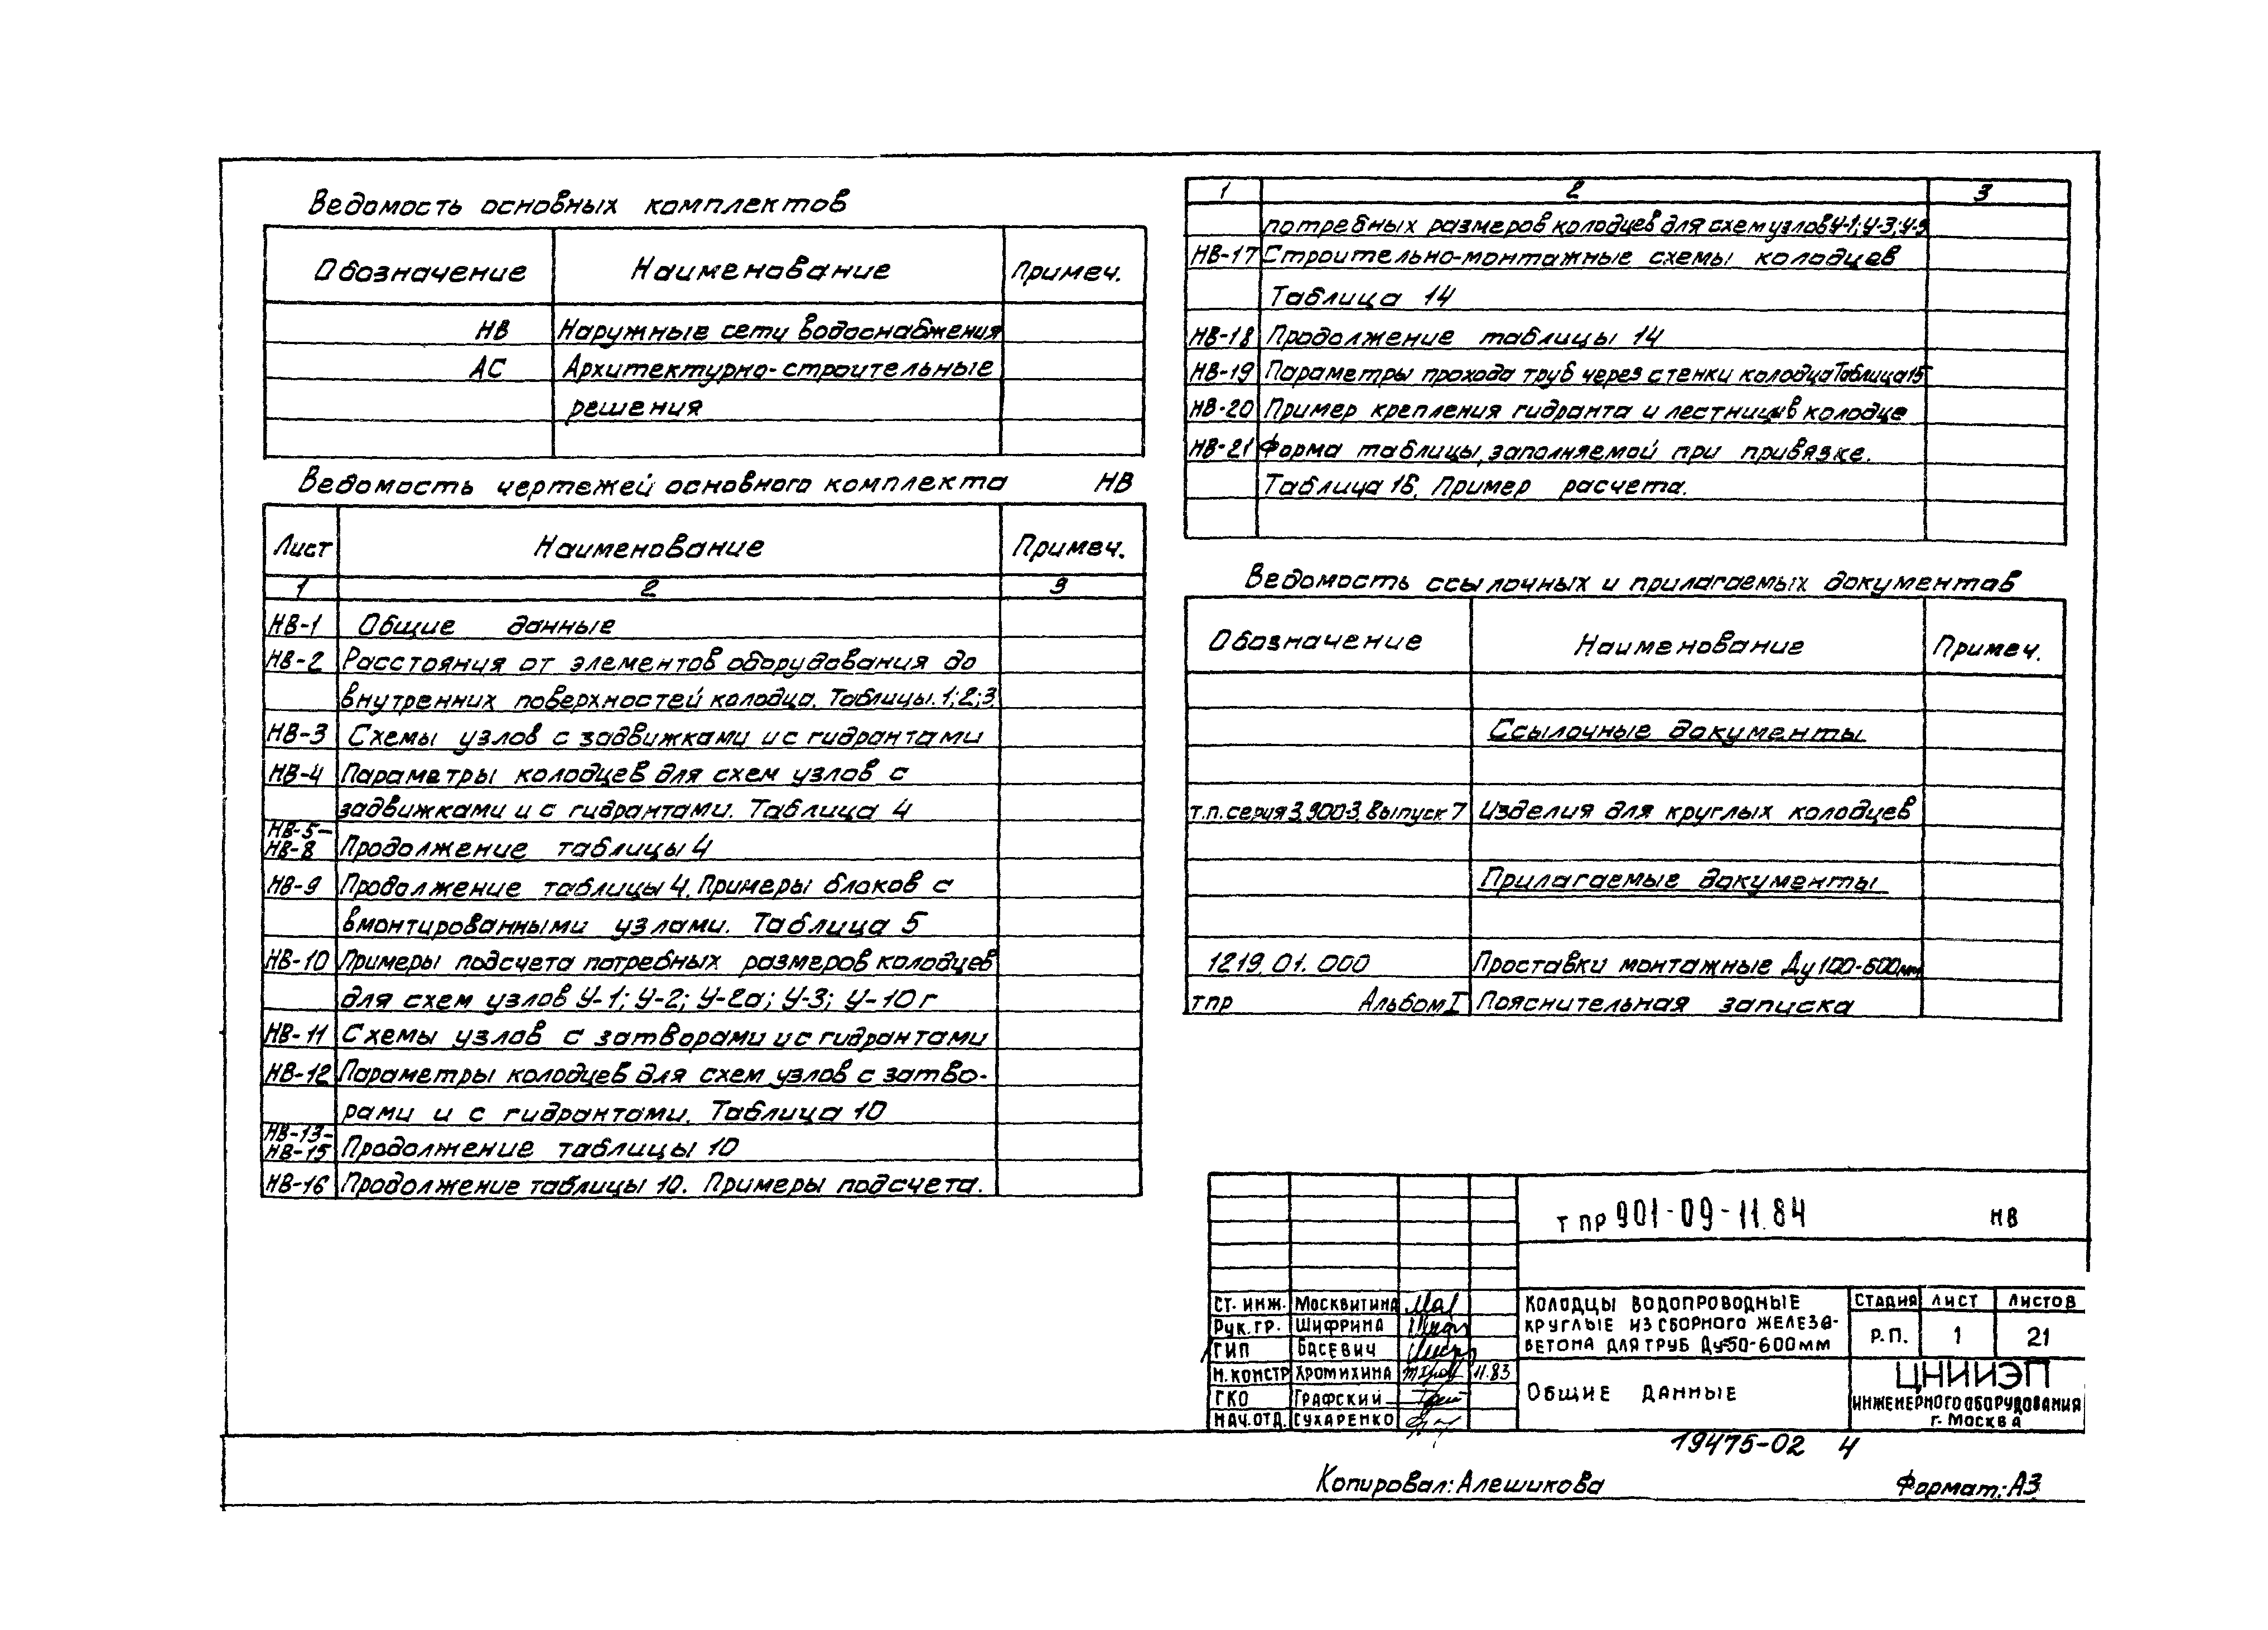 Ведомость основных комплектов
Обозначение Наименование Примеч.
НВ Наружные сети водоснабжения
АС Архитектурно-строительные
решения
Ведомость чертежей основного комплекта НВ
Лист Наименование Примеч.
1 2 3
НВ-1 Общие данные
НВ-2 Расстояния от элементов оборудования до
внутренних поверхностей колодца. Таблицы. 1;2;3.
НВ-3 Схемы узлов с задвижками и с гидрантами
НВ-4 Параметры колодцев для схем узлов с
задвижками и с гидрантами. Таблица 4
НВ-5-
НВ-8 Продолжение таблицы 4
НВ-9 Продолжение таблицы 4. Примеры блоков с
вмонтированными узлами. Таблица 5
НВ-10 Примеры подсчета потребных размеров колодцев
для схем узлов У-1; У-2; У-2а; У-3; У-10г
НВ-11 Схемы узлов с затворами и с гидрантами
НВ-12 Параметры колодцев для схем узлов с затво-
рами и с гидрантами. Таблица 10
НВ-13-
НВ-15 Продолжение таблицы 10
НВ-16 Продолжение таблицы 10. Примеры подсчета.
1 2 3
потребных размеров колодцев для схем узлов У-1; У-3; У-9
НВ-17 Строительно-монтажные схемы колодцев
Таблица 14
НВ-18 Продолжение таблицы 14
НВ-19 Параметры прохода труб через стенки колодца Таблица 15
НВ-20 Пример крепления гидранта и лестницы в колодце
НВ-21 Форма таблицы, заполняемой при привязке.
Таблица 16. Пример расчета.
Ведомость ссылочных и прилагаемых документов
Обозначение Наименование Примеч.
Ссылочные документы
т.п. серия 3.900-3. Выпуск 7 Изделия для круглых колодцев
Прилагаемые документы
1219.01.000 Проставки монтажные Ду 100-600мм
тпр Альбом I Пояснительная записка
Т ПР 901-09-11.84 НВ
Ст. инж. Москвитина
Рук. гр. Шифрина
ГИП Басевич
Н. констр Хромихина 11.83
ГКО Графский
Нач. отд. Сухаренко
Колодцы водопроводные
круглые из сборного железо-
бетона для труб Ду=50-600мм
Стадия Лист Листов
Р.П. 1 21
Общие данные
ЦНИИЭП
инженерного оборудования
г. Москва
19475-02 4
Копировал: Алешикова Формат: А3